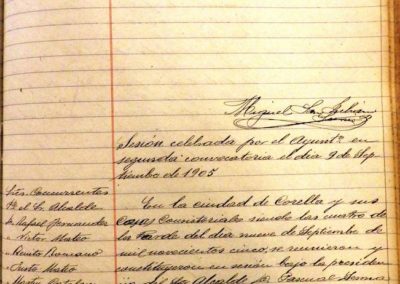 Miguel San Julian
Sesión celebrada por el Ayuntº en
segunda convocatoria el dia 9 de Sep-
tiembre de 1905
Sres. Concurrentes
Te. el Sr. Alcalde
D. Rafael Fernandez
" Victor Mateo
" Benito
" Justo Mateo
En la ciudad de Corella y sus
Casas Consistoriales siendo las cuatro de
la tarde del dia nueve de Septiembre de
mil novecientos cinco, se reunieron y
constituyeron en sesión bajo la presiden-
cia del Sor Alcalde D. Pascual